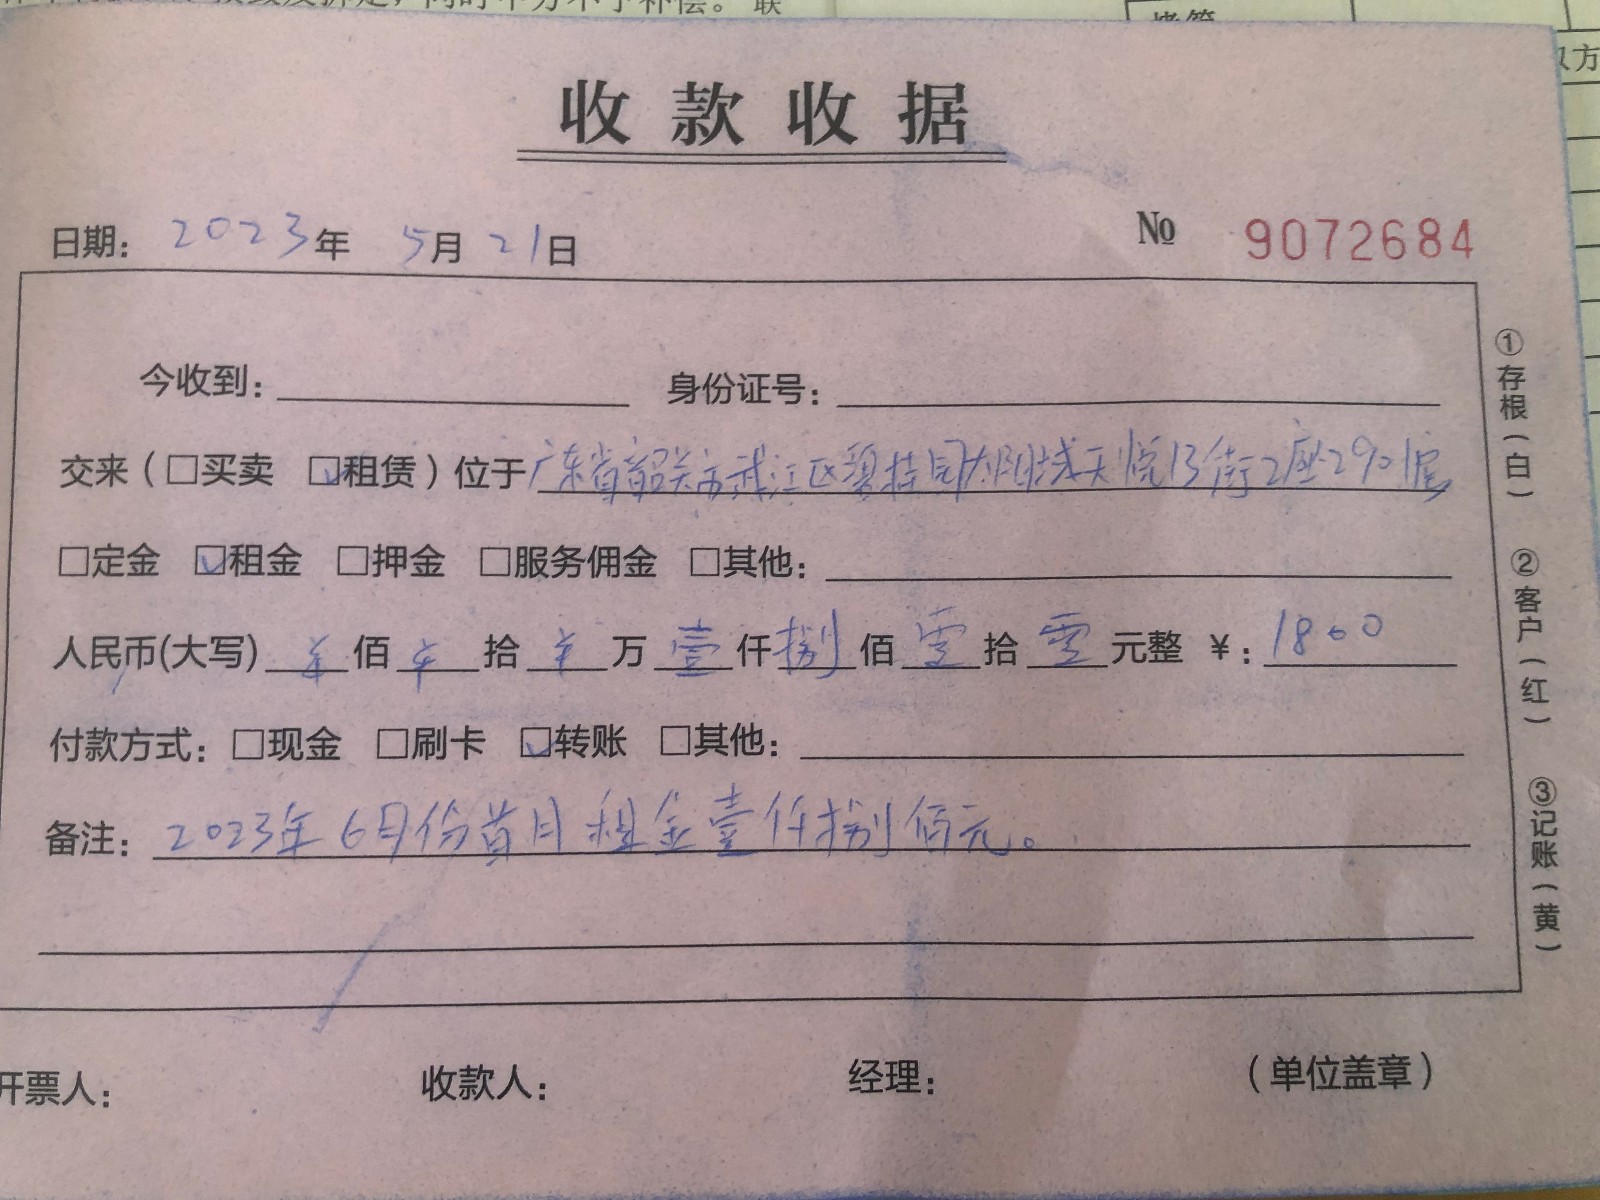 收款收据
日期: 2023年 5月 21日 № 9072684
今收到: 身份证号:
交来(□买卖 ☑租赁)位于广东省韶关市武江区碧桂园太阳城天悦13街2座2901房
□定金 ☑租金 □押金 □服务佣金 □其他:
人民币(大写) ¥ 佰 ¥ 拾 ¥ 万 壹 仟 捌 佰 零 拾 零 元整 ¥: 1800
付款方式: □现金 □刷卡 ☑转账 □其他:
备注: 2023年6月份首月租金壹仟捌佰元。
开票人: 收款人: 经理: (单位盖章)
①存根(白)
②客户(红)
③记账(黄)